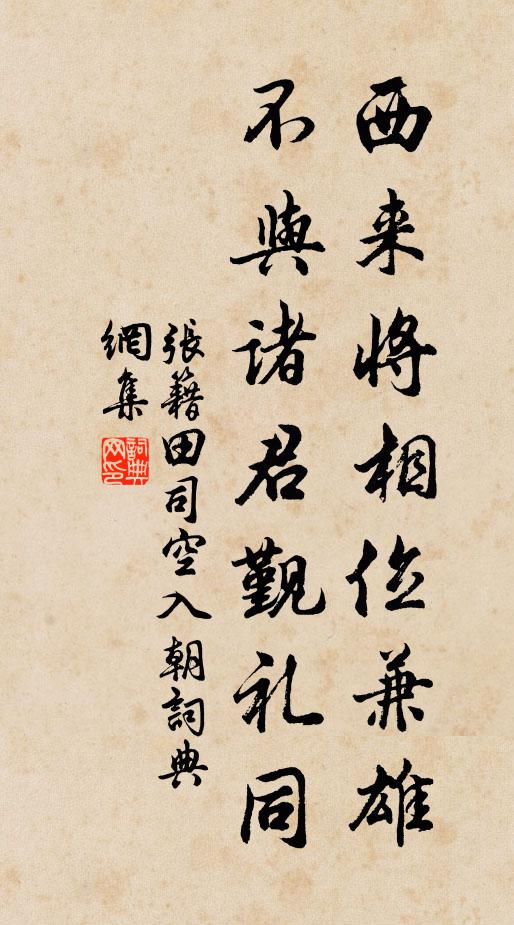 西来将相位兼雄
不與诸君觐礼同
張籍田司空入朝詞典
網集
詞典
网印